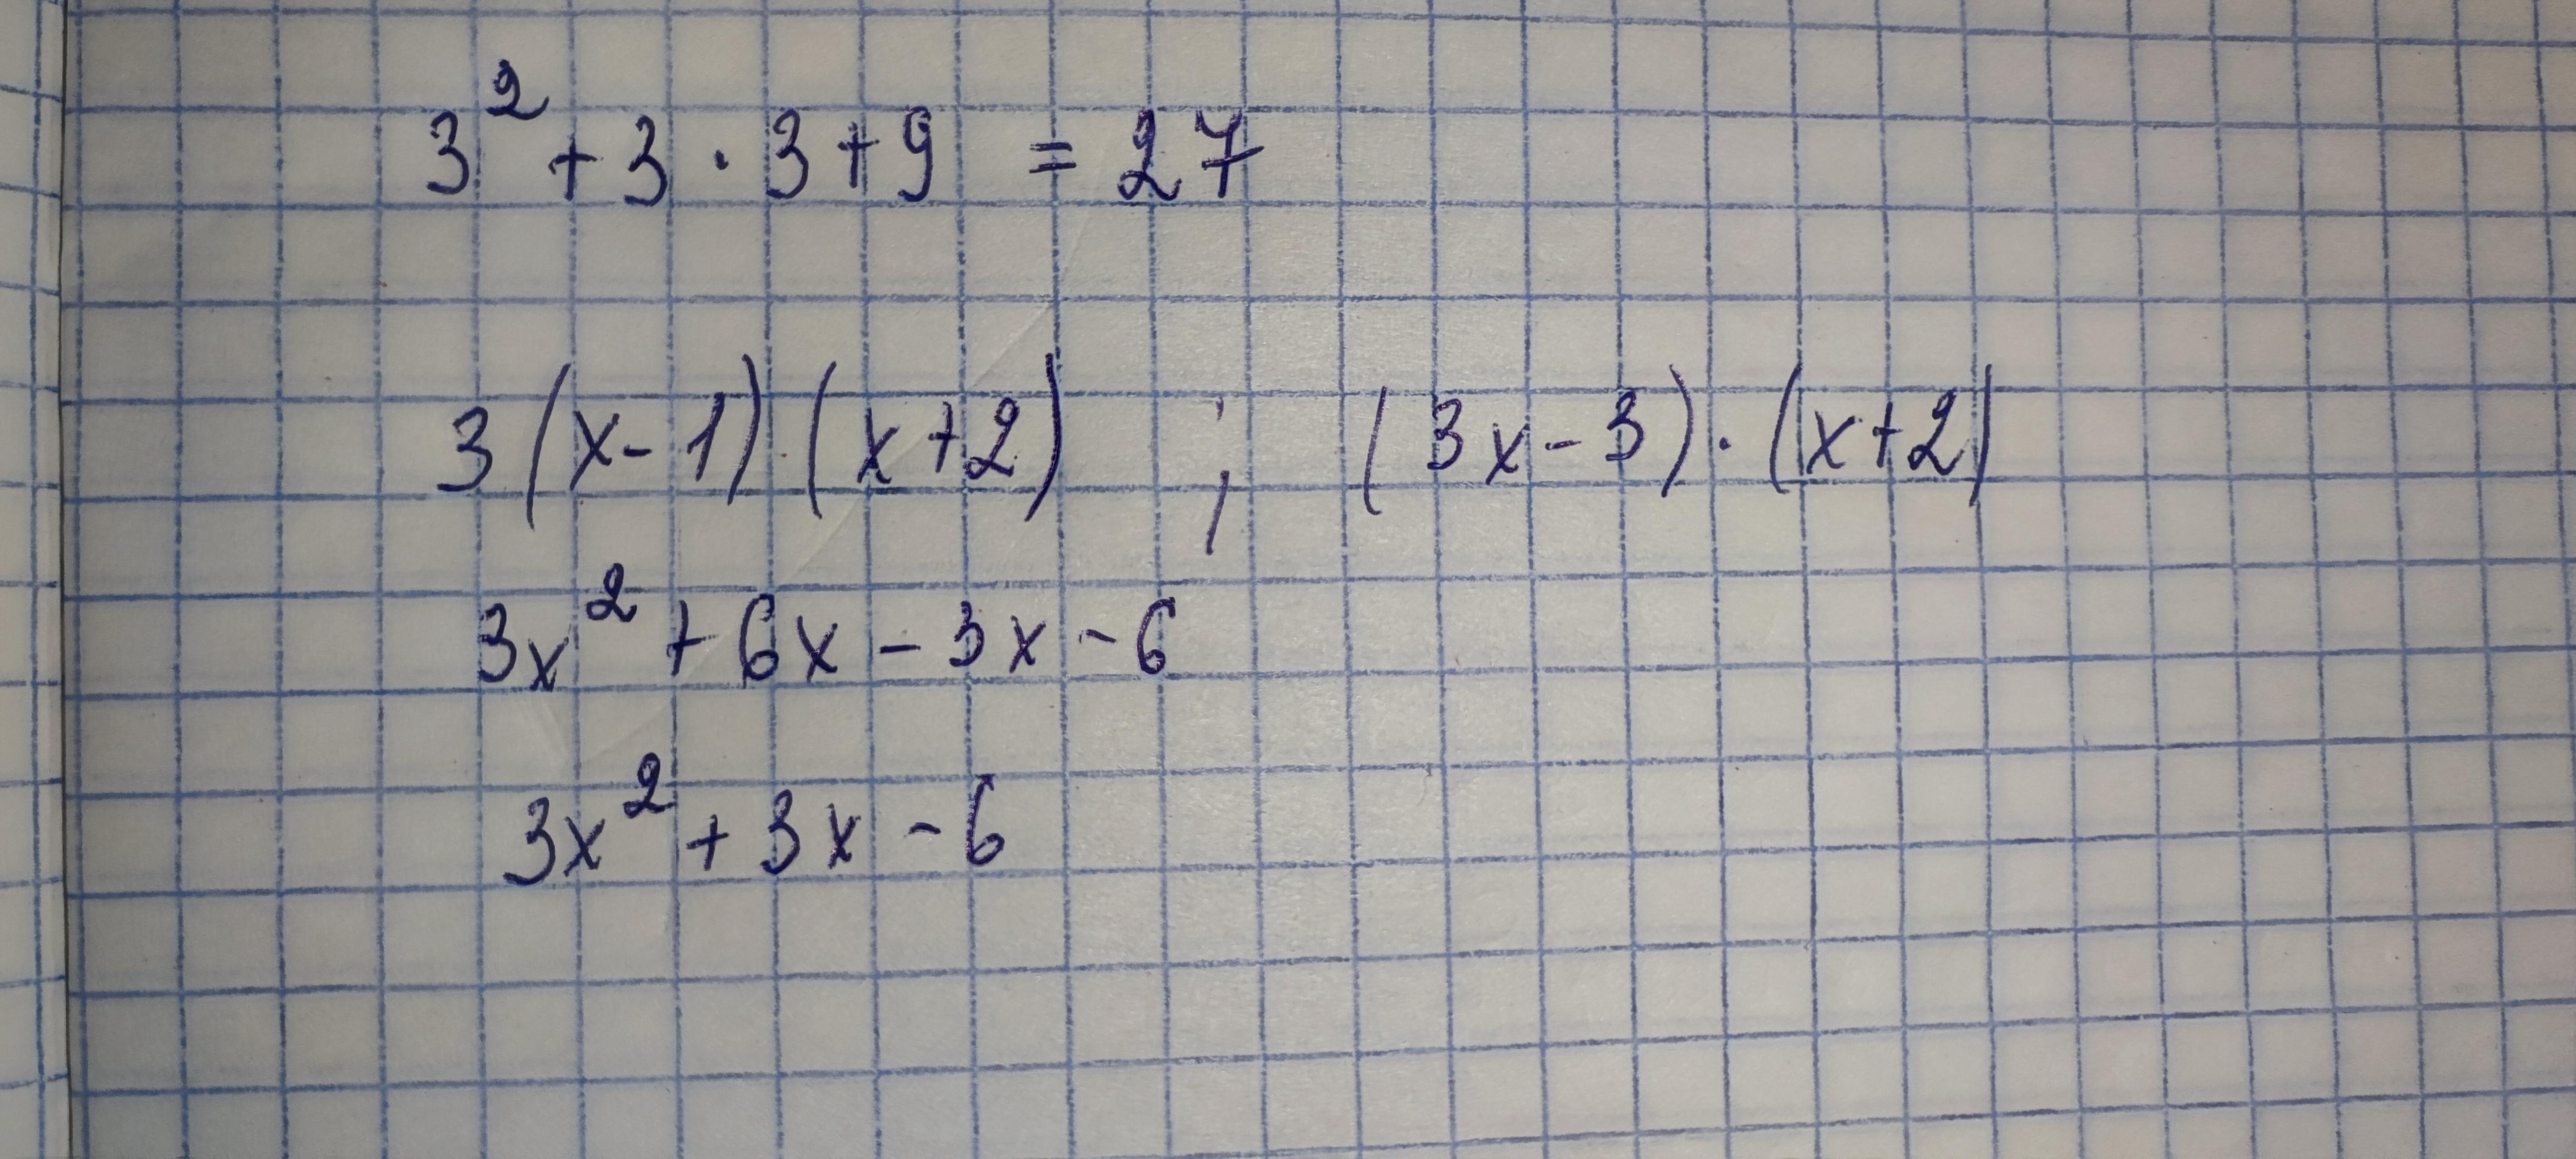 3² + 3 · 3 + 9 = 27
3(x - 1)·(x + 2) ; (3x - 3)·(x + 2)
3x² + 6x - 3x - 6
3x² + 3x - 6